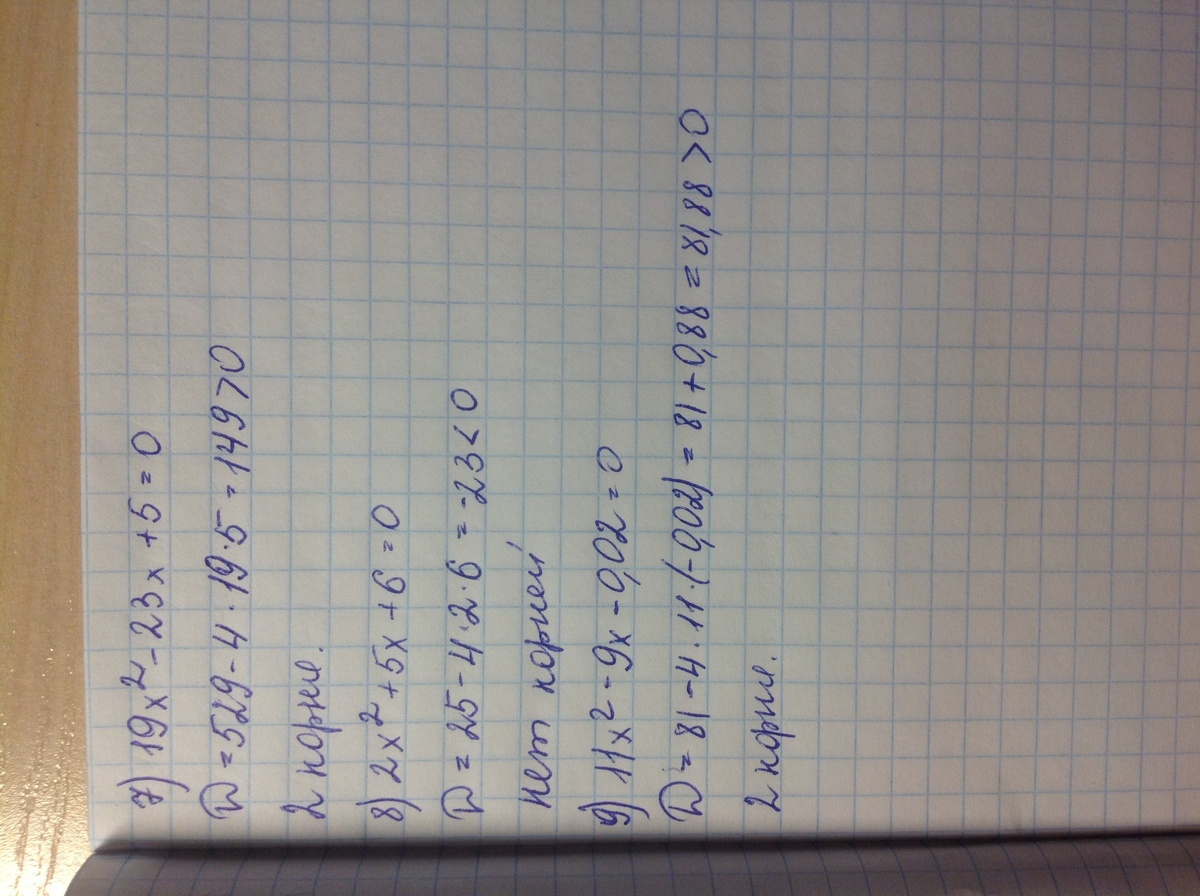 7) 19x² - 23x + 5 = 0
D = 529 - 4 · 19 · 5 = 149 > 0
2 корня.
8) 2x² + 5x + 6 = 0
D = 25 - 4 · 2 · 6 = -23 < 0
нет корней
9) 11x² - 9x - 0,02 = 0
D = 81 - 4 · 11 · (-0,02) = 81 + 0,88 = 81,88 > 0
2 корня.